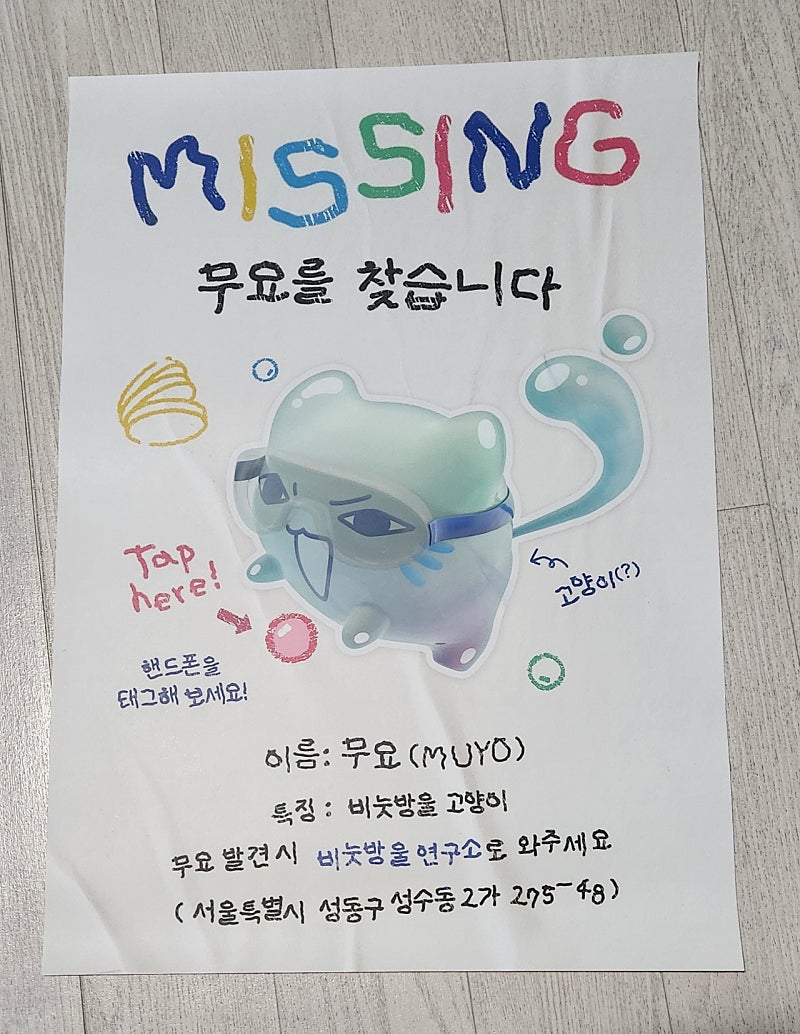 MISSING
무요를 찾습니다
Tap
here!
고양이(?)
핸드폰을
태그해 보세요!
이름: 무요(MUYO)
특징: 비눗방울 고양이
무요 발견시 비눗방울 연구소로 와주세요
(서울특별시 성동구 성수동2가 275-48)